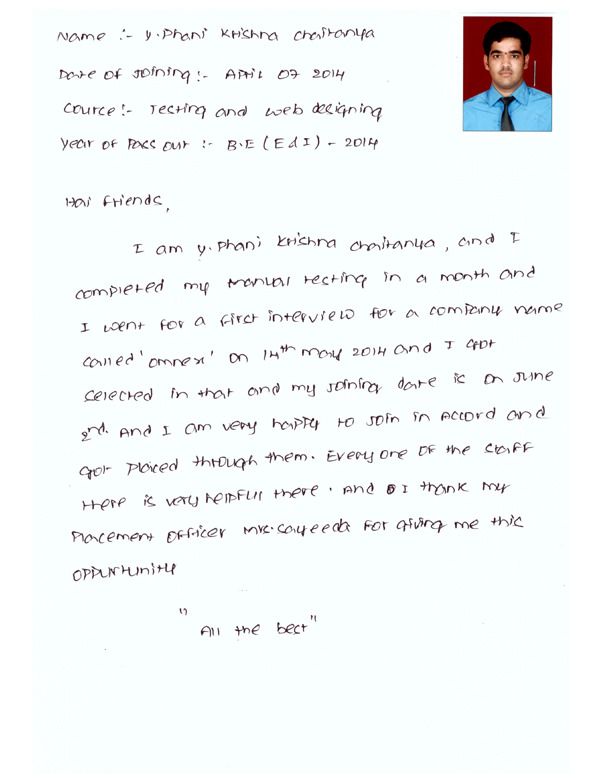 Name :- Y.Phani Krishna Chaitanya
Date of Joining :- April 07 2014
Cource :- Testing and web designing
Year of Pass out :- B.E (E&I) - 2014
Hai Friends,
I am Y.Phani Krishna Chaitanya, and I
completed my Manual testing in a month and
I went for a first interview for a company name
called 'omnex' on 14th May 2014 and I got
selected in that and my Joining date is on June
2nd. And I am very happy to Join in Accord and
got placed through them. Every one of the staff
there is very helpful there. And I thank my
Placement Officer Mrs.Sayeeda for giving me this
oppurtunity
" All the best "